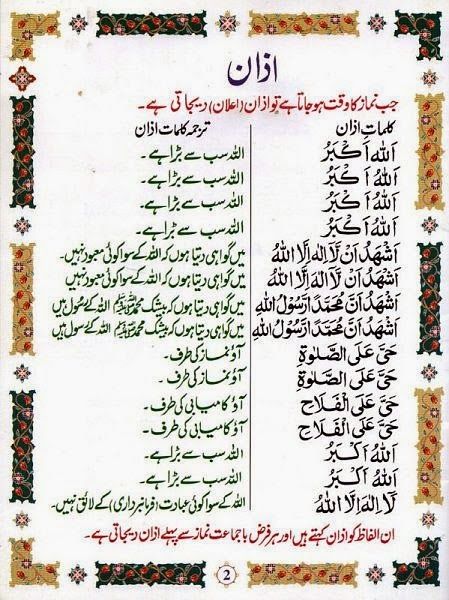 اذان
جب نماز کا وقت ہو جاتا ہے تو اذان (اعلان) دیجاتی ہے۔
کلماتِ اذان ترجمہ کلمات اذان
اَللهُ اَكْبَرُ اللہ سب سے بڑا ہے۔
اَللهُ اَكْبَرُ اللہ سب سے بڑا ہے۔
اَللهُ اَكْبَرُ اللہ سب سے بڑا ہے۔
اَللهُ اَكْبَرُ اللہ سب سے بڑا ہے۔
اَشْهَدُ اَنْ لَّا اِلٰهَ اِلَّا اللهُ میں گواہی دیتا ہوں کہ اللہ کے سوا کوئی معبود نہیں۔
اَشْهَدُ اَنْ لَّا اِلٰهَ اِلَّا اللهُ میں گواہی دیتا ہوں کہ اللہ کے سوا کوئی معبود نہیں۔
اَشْهَدُ اَنَّ مُحَمَّدًا رَّسُوْلُ اللهِ میں گواہی دیتا ہوں کہ بیشک محمد ﷺ اللہ کے رسول ہیں
اَشْهَدُ اَنَّ مُحَمَّدًا رَّسُوْلُ اللهِ میں گواہی دیتا ہوں کہ بیشک محمد ﷺ اللہ کے رسول ہیں۔
حَيَّ عَلَى الصَّلٰوةِ آؤ نماز کی طرف۔
حَيَّ عَلَى الصَّلٰوةِ آؤ نماز کی طرف۔
حَيَّ عَلَى الْفَلَاحِ آؤ کامیابی کی طرف۔
حَيَّ عَلَى الْفَلَاحِ آؤ کامیابی کی طرف۔
اَللهُ اَكْبَرُ اللہ سب سے بڑا ہے۔
اَللهُ اَكْبَرُ اللہ سب سے بڑا ہے۔
لَا اِلٰهَ اِلَّا اللهُ اللہ کے سوا کوئی عبادت (فرمانبرداری) کے لائق نہیں۔
ان الفاظ کو اذان کہتے ہیں اور ہر فرض با جماعت نماز سے پہلے اذان دیجاتی ہے۔
2